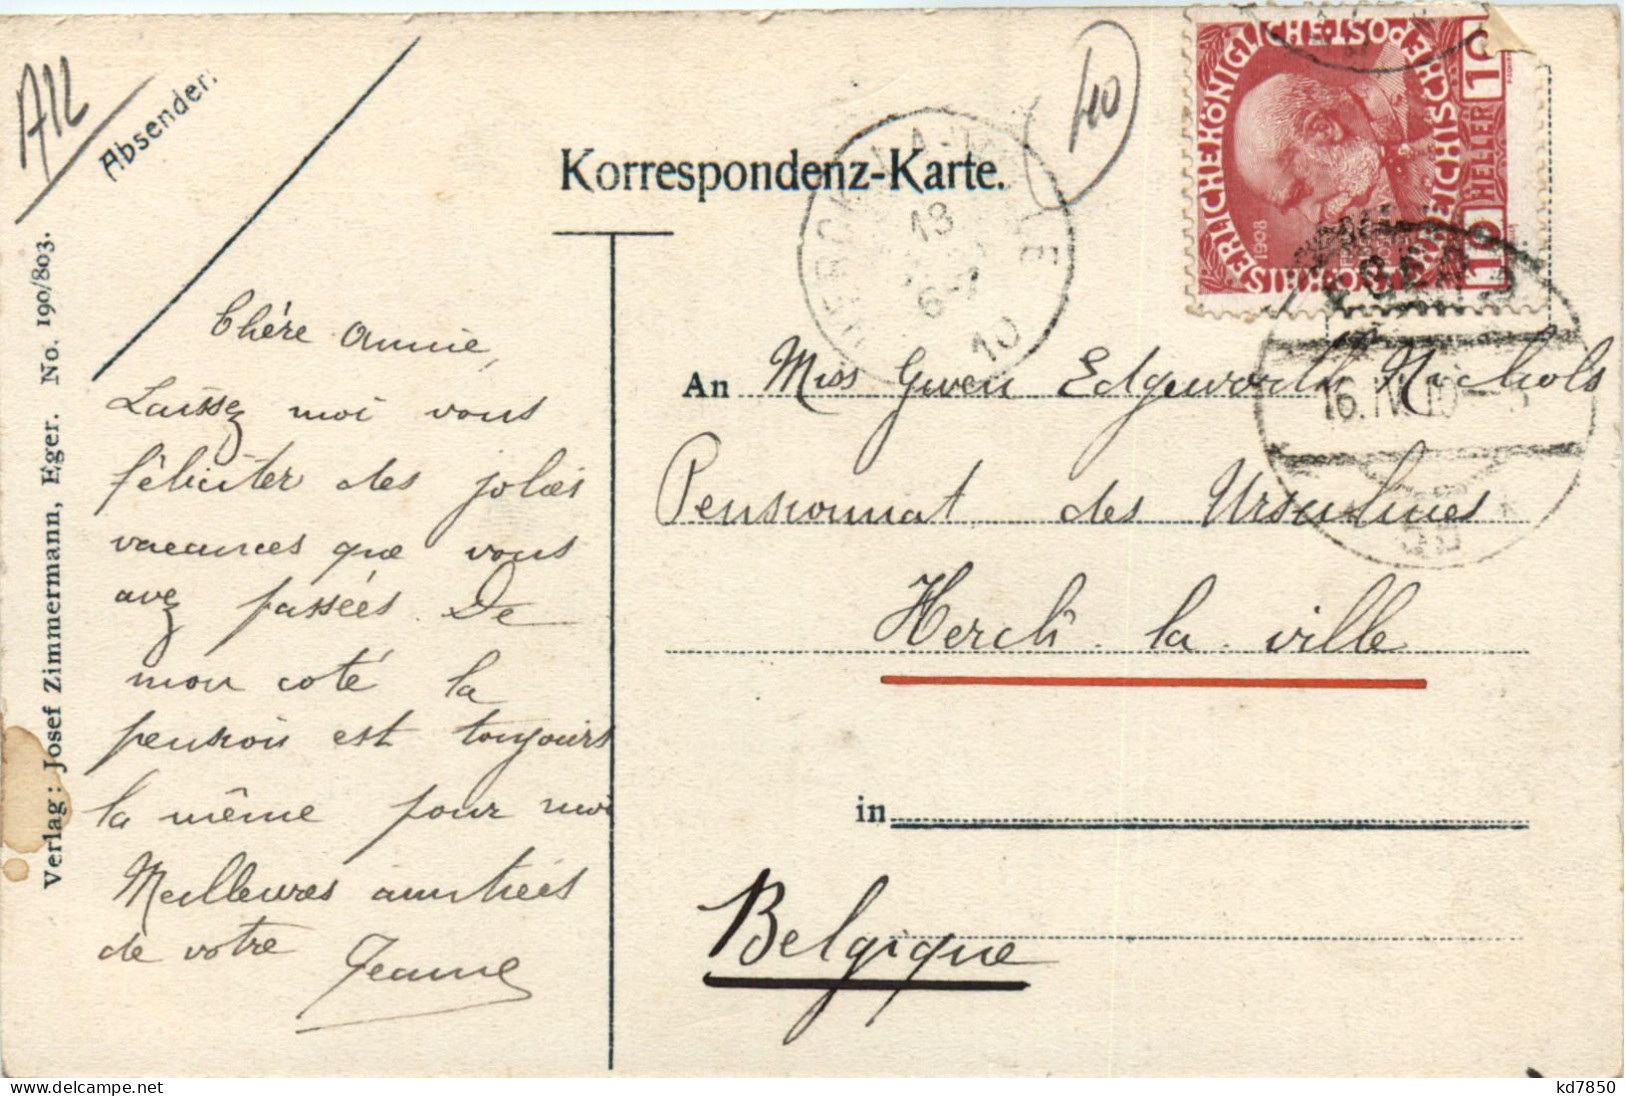 A12
Absender:
Korrespondenz-Karte.
40
KAISERLICHE KÖNIGLICHE ÖSTERREICHISCHE POST
1908
10 HELLER 10
HERCK-LA-VILLE
13
6-7
10
EGER
16.IV.10
Verlag: Josef Zimmermann, Eger. No. 190/803.
Chère Annie,
Laissez moi vous
féliciter des jolies
vacances que vous
avez passées. De
mon coté la
pension est toujours
la même pour moi
Meilleures amitiés
de votre Jeanne
An Miss Gwen Edgeworth Nichols
Pensionnat des Ursulines
Herck la ville
in
Belgique
delcampe.net
kd7850